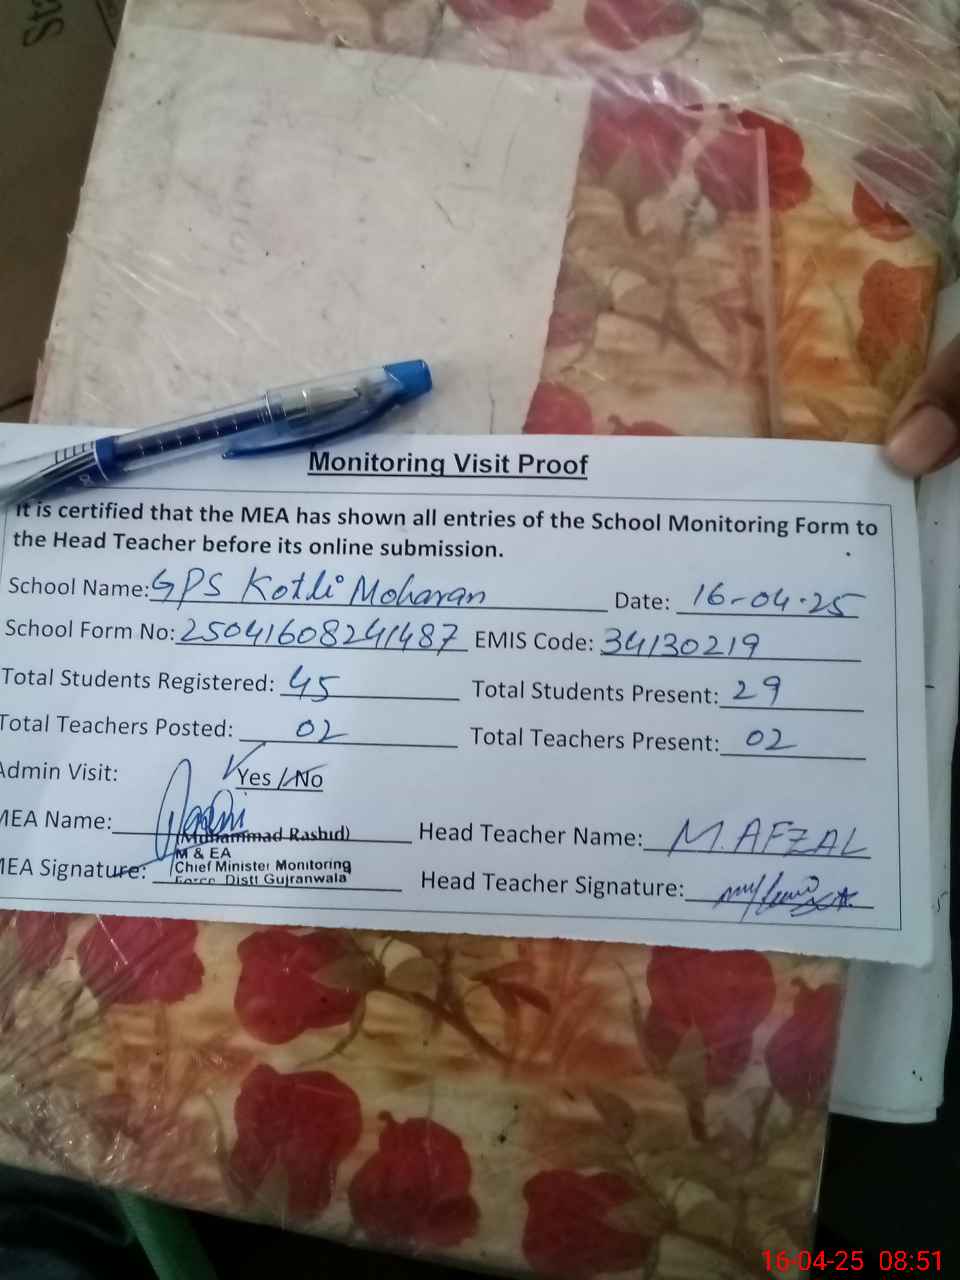 Sta
Monitoring Visit Proof
It is certified that the MEA has shown all entries of the School Monitoring Form to
the Head Teacher before its online submission.
School Name: GPS Kotli Moharan Date: 16-04-25
School Form No: 25041608241487 EMIS Code: 34130219
Total Students Registered: 45 Total Students Present: 29
Total Teachers Posted: 02 Total Teachers Present: 02
Admin Visit: Yes / No
MEA Name: Head Teacher Name: M. AFZAL
(Muhammad Rashid)
M & EA
MEA Signature: Chief Minister Monitoring Head Teacher Signature:
Force Distt Gujranwala
16-04-25 08:51